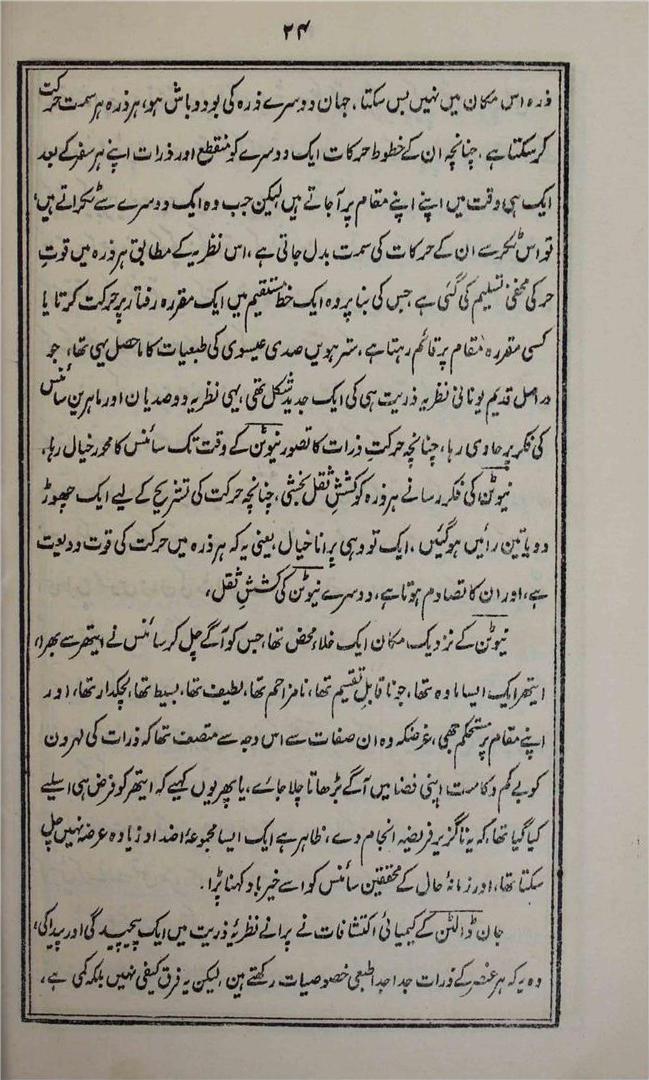 ۲۴
ذرہ اس مکان میں نہیں بس سکتا، جہان دوسرے ذرہ کی بود و باش ہو، ہر ذرہ ہر سمت حرکت
کرسکتا ہے، چنانچہ ان کے خطوط حرکات ایک دوسرے کو منقطع اور ذرات اپنے ہر سفر کے بعد
ایک ہی وقت میں اپنے اپنے مقام پر آجاتے ہیں لیکن جب وہ ایک دوسرے سے ٹکراتے ہیں،
تو اس ٹکر سے ان کے حرکات کی سمت بدل جاتی ہے، اس نظریہ کے مطابق ہر ذرہ میں قوتِ
حرکی مخفی تسلیم کی گئی ہے، جس کی بنا پر وہ ایک خط مستقیم میں ایک مقررہ رفتار پر حرکت کرتا یا
کسی مقررہ مقام پر قائم رہتا ہے، سترہویں صدی عیسوی کی طبعیات کا ماحصل یہی تھا، جو
دراصل قدیم یونانی نظریہ ذریت ہی کی ایک جدید شکل تھی، یہی نظریہ دو صدیان اور ماہرین سائنس
کی فکر پر حاوی رہا، چنانچہ حرکتِ ذرات کا تصور نیوٹن کے وقت تک سائنس کا محور خیال رہا،
نیوٹن کی فکر رسا نے ہر ذرہ کو کششِ ثقل بخشی، چنانچہ حرکت کی تشریح کے لیے ایک چھوڑ
دو یا تین رائیں ہوگئیں، ایک تو وہی پرانا خیال، یعنی یہ کہ ہر ذرہ میں حرکت کی قوت ودیعت
ہے، اور ان کا تصادم ہوتا ہے، دوسرے نیوٹن کی کششِ ثقل،
نیوٹن کے نزدیک مکان ایک خلاء محض تھا، جس کو آگے چل کر سائنس نے ایتھر سے بھرا،
ایتھر ایک ایسا مادہ تھا، جو ناقابل تقسیم تھا، نامزاحم تھا، لطیف تھا، بسیط تھا، لچکدار تھا، اور
اپنے مقام پر مستحکم بھی، غرضکہ وہ ان صفات سے اس وجہ سے متصف تھا کہ ذرات کی لہرون
کو بے کم و کاست اپنی فضا میں آگے بڑھاتا چلا جائے، یا پھر یوں کہیے کہ ایتھر کو فرض ہی اسلیے
کیا گیا تھا، کہ یہ ناگزیر فریضہ انجام دے، ظاہر ہے ایک ایسا مجموعۂ اضداد زیادہ عرصہ نہیں چل
سکتا تھا، اور زمانۂ حال کے محققین سائنس کو اسے خیرباد کہنا پڑا.
جان ڈالٹن کے کیمیائی اکتشافات نے پرانے نظریۂ ذریت میں ایک پیچیدگی اور پیدا کی،
وہ یہ کہ ہر عنصر کے ذرات جدا جدا طبعی خصوصیات رکھتے ہین، لیکن یہ فرق کیفی نہیں بلکہ کمی ہے،